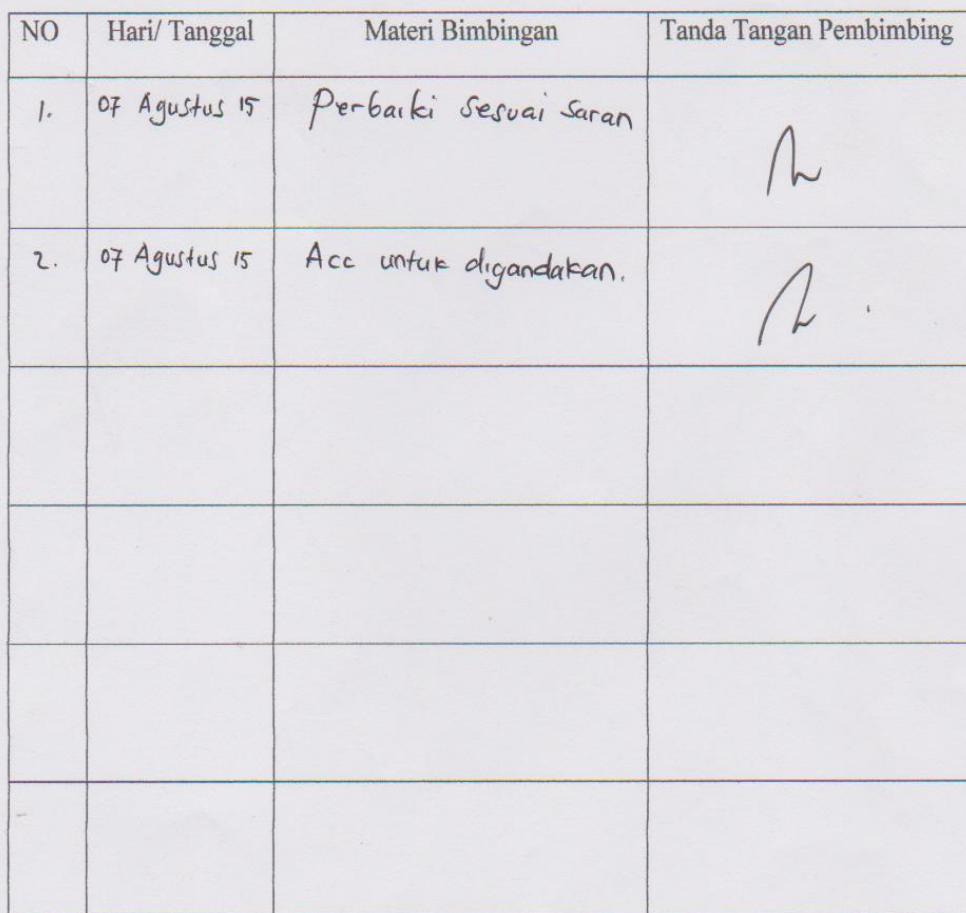 NO Hari/ Tanggal Materi Bimbingan Tanda Tangan Pembimbing
1. 07 Agustus 15 Perbaiki Sesuai Saran
2. 07 Agustus 15 Acc untuk digandakan.